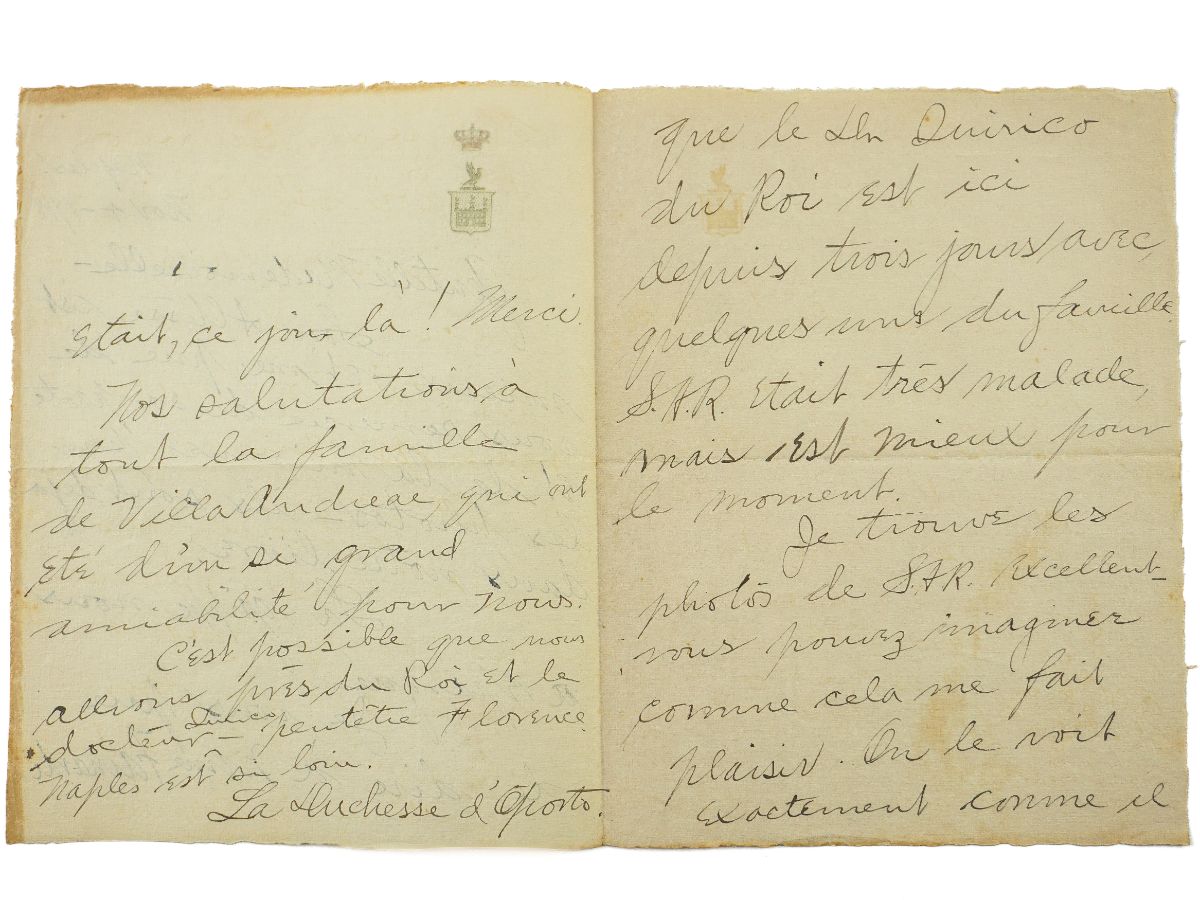 que le Dr Quirico
du Roi est ici
depuis trois jours avec,
quelques uns du famille.
S.A.R. etait très malade,
mais est mieux pour
le moment.
Je trouve les
photos de S.A.R. excellent-
vous pouvez imaginez
comme cela me fait
plaisir. On le voit
exactement comme il
Etait, ce jour la! Merci.
Nos salutations à
tout la famille
de Villa Andreae qui ont
eté d'un si grand
amiabilité pour nous.
C'est possible que nous
allions près du Roi et le
docteur Quirico - peutêtre Florence
Naples est si loin.
La Duchesse d'Oporto.